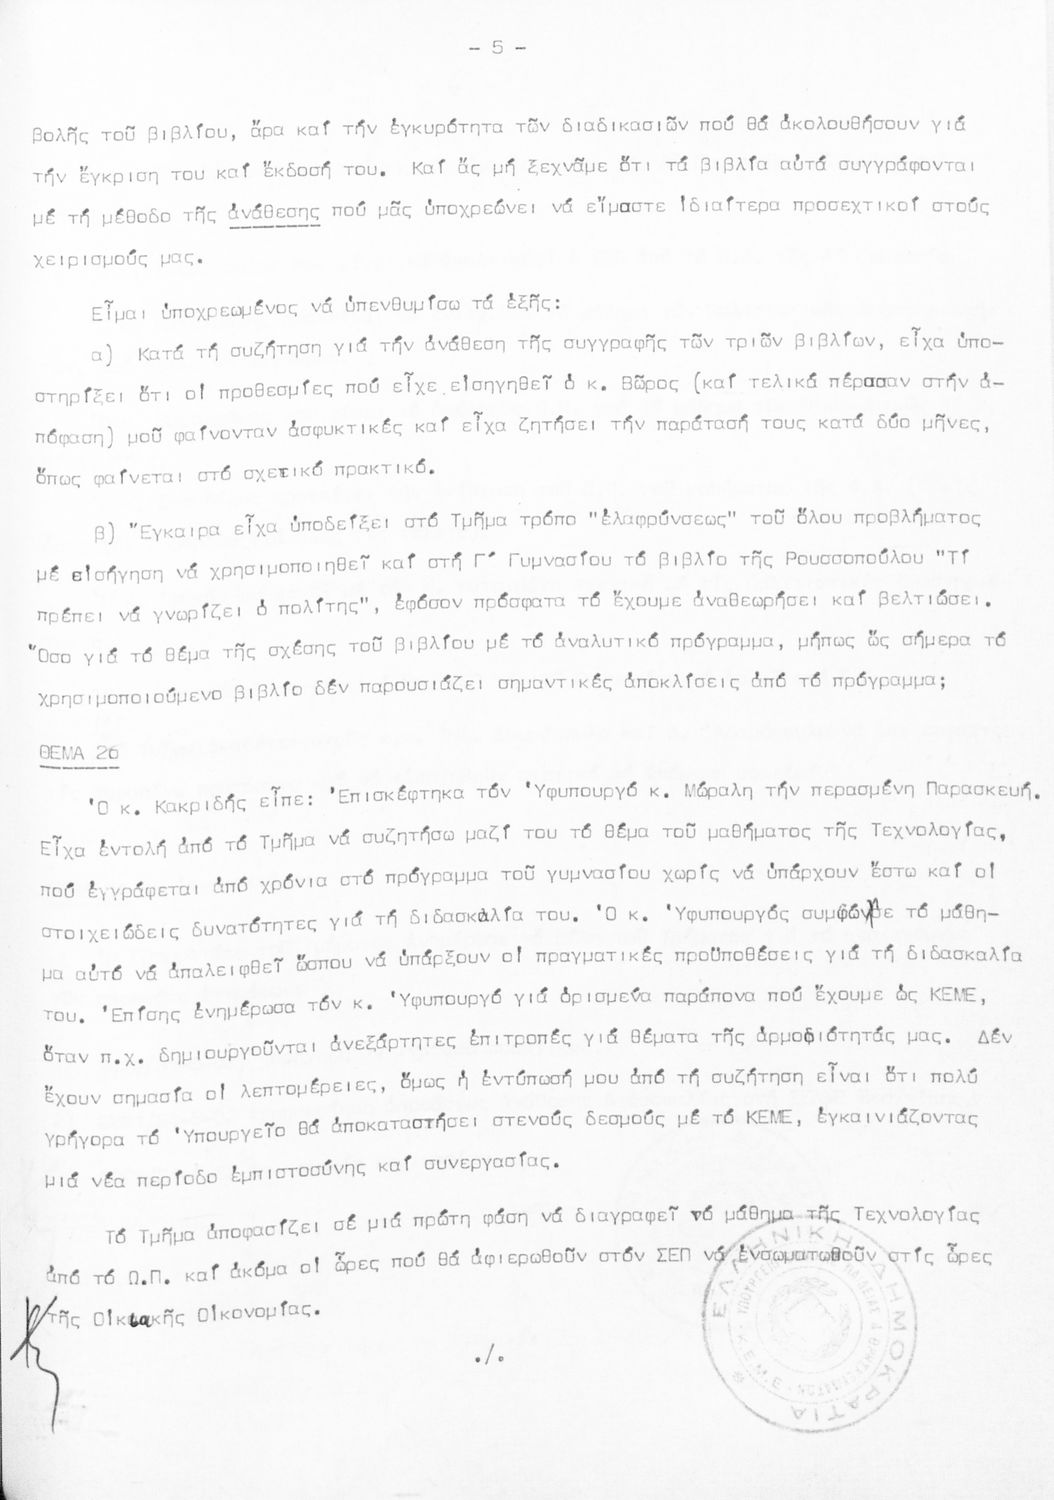 - 5 -
βολῆς τοῦ βιβλίου, ἄρα καί τήν ἐγκυρότητα τῶν διαδικασιῶν πού θά ἀκολουθήσουν γιά
τήν ἔγκριση του καί ἔκδοσή του. Καί ἄς μή ξεχνᾶμε ὅτι τά βιβλία αὐτά συγγράφονται
μέ τή μέθοδο τῆς ἀνάθεσης πού μᾶς ὑποχρεώνει νά εἴμαστε ἰδιαίτερα προσεχτικοί στούς
χειρισμούς μας.
Εἶμαι ὑποχρεωμένος νά ὑπενθυμίσω τά ἑξῆς:
α) Κατά τή συζήτηση γιά τήν ἀνάθεση τῆς συγγραφῆς τῶν τριῶν βιβλίων, εἶχα ὑπο-
στηρίξει ὅτι οἱ προθεσμίες πού εἶχε εἰσηγηθεῖ ὁ κ. Βῶρος (καί τελικά πέρασαν στήν ἀ-
πόφαση) μοῦ φαίνονταν ἀσφυκτικές καί εἶχα ζητήσει τήν παράτασή τους κατά δύο μῆνες,
ὅπως φαίνεται στό σχετικό πρακτικό.
β) Ἔγκαιρα εἶχα ὑποδείξει στό Τμῆμα τρόπο "ἐλαφρύνσεως" τοῦ ὅλου προβλήματος
μέ εἰσήγηση νά χρησιμοποιηθεῖ καί στή Γ΄ Γυμνασίου τό βιβλίο τῆς Ρουσσοπούλου "Τί
πρέπει νά γνωρίζει ὁ πολίτης", ἐφόσον πρόσφατα τό ἔχουμε ἀναθεωρήσει καί βελτιώσει.
Ὅσο γιά τό θέμα τῆς σχέσης τοῦ βιβλίου μέ τό ἀναλυτικό πρόγραμμα, μήπως ὥς σήμερα τό
χρησιμοποιούμενο βιβλίο δέν παρουσιάζει σημαντικές ἀποκλίσεις ἀπό τό πρόγραμμα;
ΘΕΜΑ 26
Ὁ κ. Κακριδής εἶπε: Ἐπισκέφτηκα τόν Ὑφυπουργό κ. Μώραλη τήν περασμένη Παρασκευή.
Εἶχα ἐντολή ἀπό τό Τμῆμα νά συζητήσω μαζί του τό θέμα τοῦ μαθήματος τῆς Τεχνολογίας,
πού ἐγγράφεται ἀπό χρόνια στό πρόγραμμα τοῦ γυμνασίου χωρίς νά ὑπάρχουν ἔστω καί οἱ
στοιχειώδεις δυνατότητες γιά τή διδασκαλία του. Ὁ κ. Ὑφυπουργός συμφώνησε τό μάθη-
μα αὐτό νά ἀπαλειφθεῖ ὥσπου νά ὑπάρξουν οἱ πραγματικές προϋποθέσεις γιά τή διδασκαλία
του. Ἐπίσης ἐνημέρωσα τόν κ. Ὑφυπουργό γιά ὁρισμένα παράπονα πού ἔχουμε ὡς ΚΕΜΕ,
ὅταν π.χ. δημιουργοῦνται ἀνεξάρτητες ἐπιτροπές γιά θέματα τῆς ἁρμοδιότητάς μας. Δέν
ἔχουν σημασία οἱ λεπτομέρειες, ὅμως ἡ ἐντύπωσή μου ἀπό τή συζήτηση εἶναι ὅτι πολύ
γρήγορα τό Ὑπουργεῖο θά ἀποκαταστήσει στενούς δεσμούς μέ τό ΚΕΜΕ, ἐγκαινιάζοντας
μιά νέα περίοδο ἐμπιστοσύνης καί συνεργασίας.
Τό Τμῆμα ἀποφασίζει σέ μιά πρώτη φάση νά διαγραφεῖ τό μάθημα τῆς Τεχνολογίας
ἀπό τό Ω.Π. καί ἀκόμα οἱ ὧρες πού θά ἀφιερωθοῦν στόν ΣΕΠ νά ἐνσωματωθοῦν στίς ὧρες
τῆς Οἰκιακῆς Οἰκονομίας.
./.
ΕΛΛΗΝΙΚΗ ΔΗΜΟΚΡΑΤΙΑ
Κ.Ε.Μ.Ε.